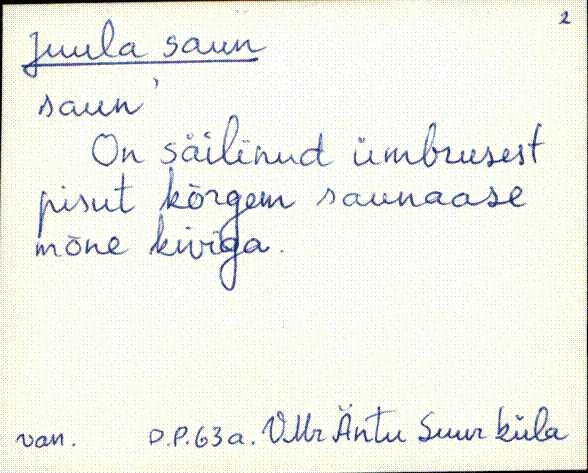 2
Juula saun
saun'
On säilinud ümbrusest
pisut kõrgem saunaase
mõne kiviga.
van. D.P.63a. VMr Äntu Suurküla